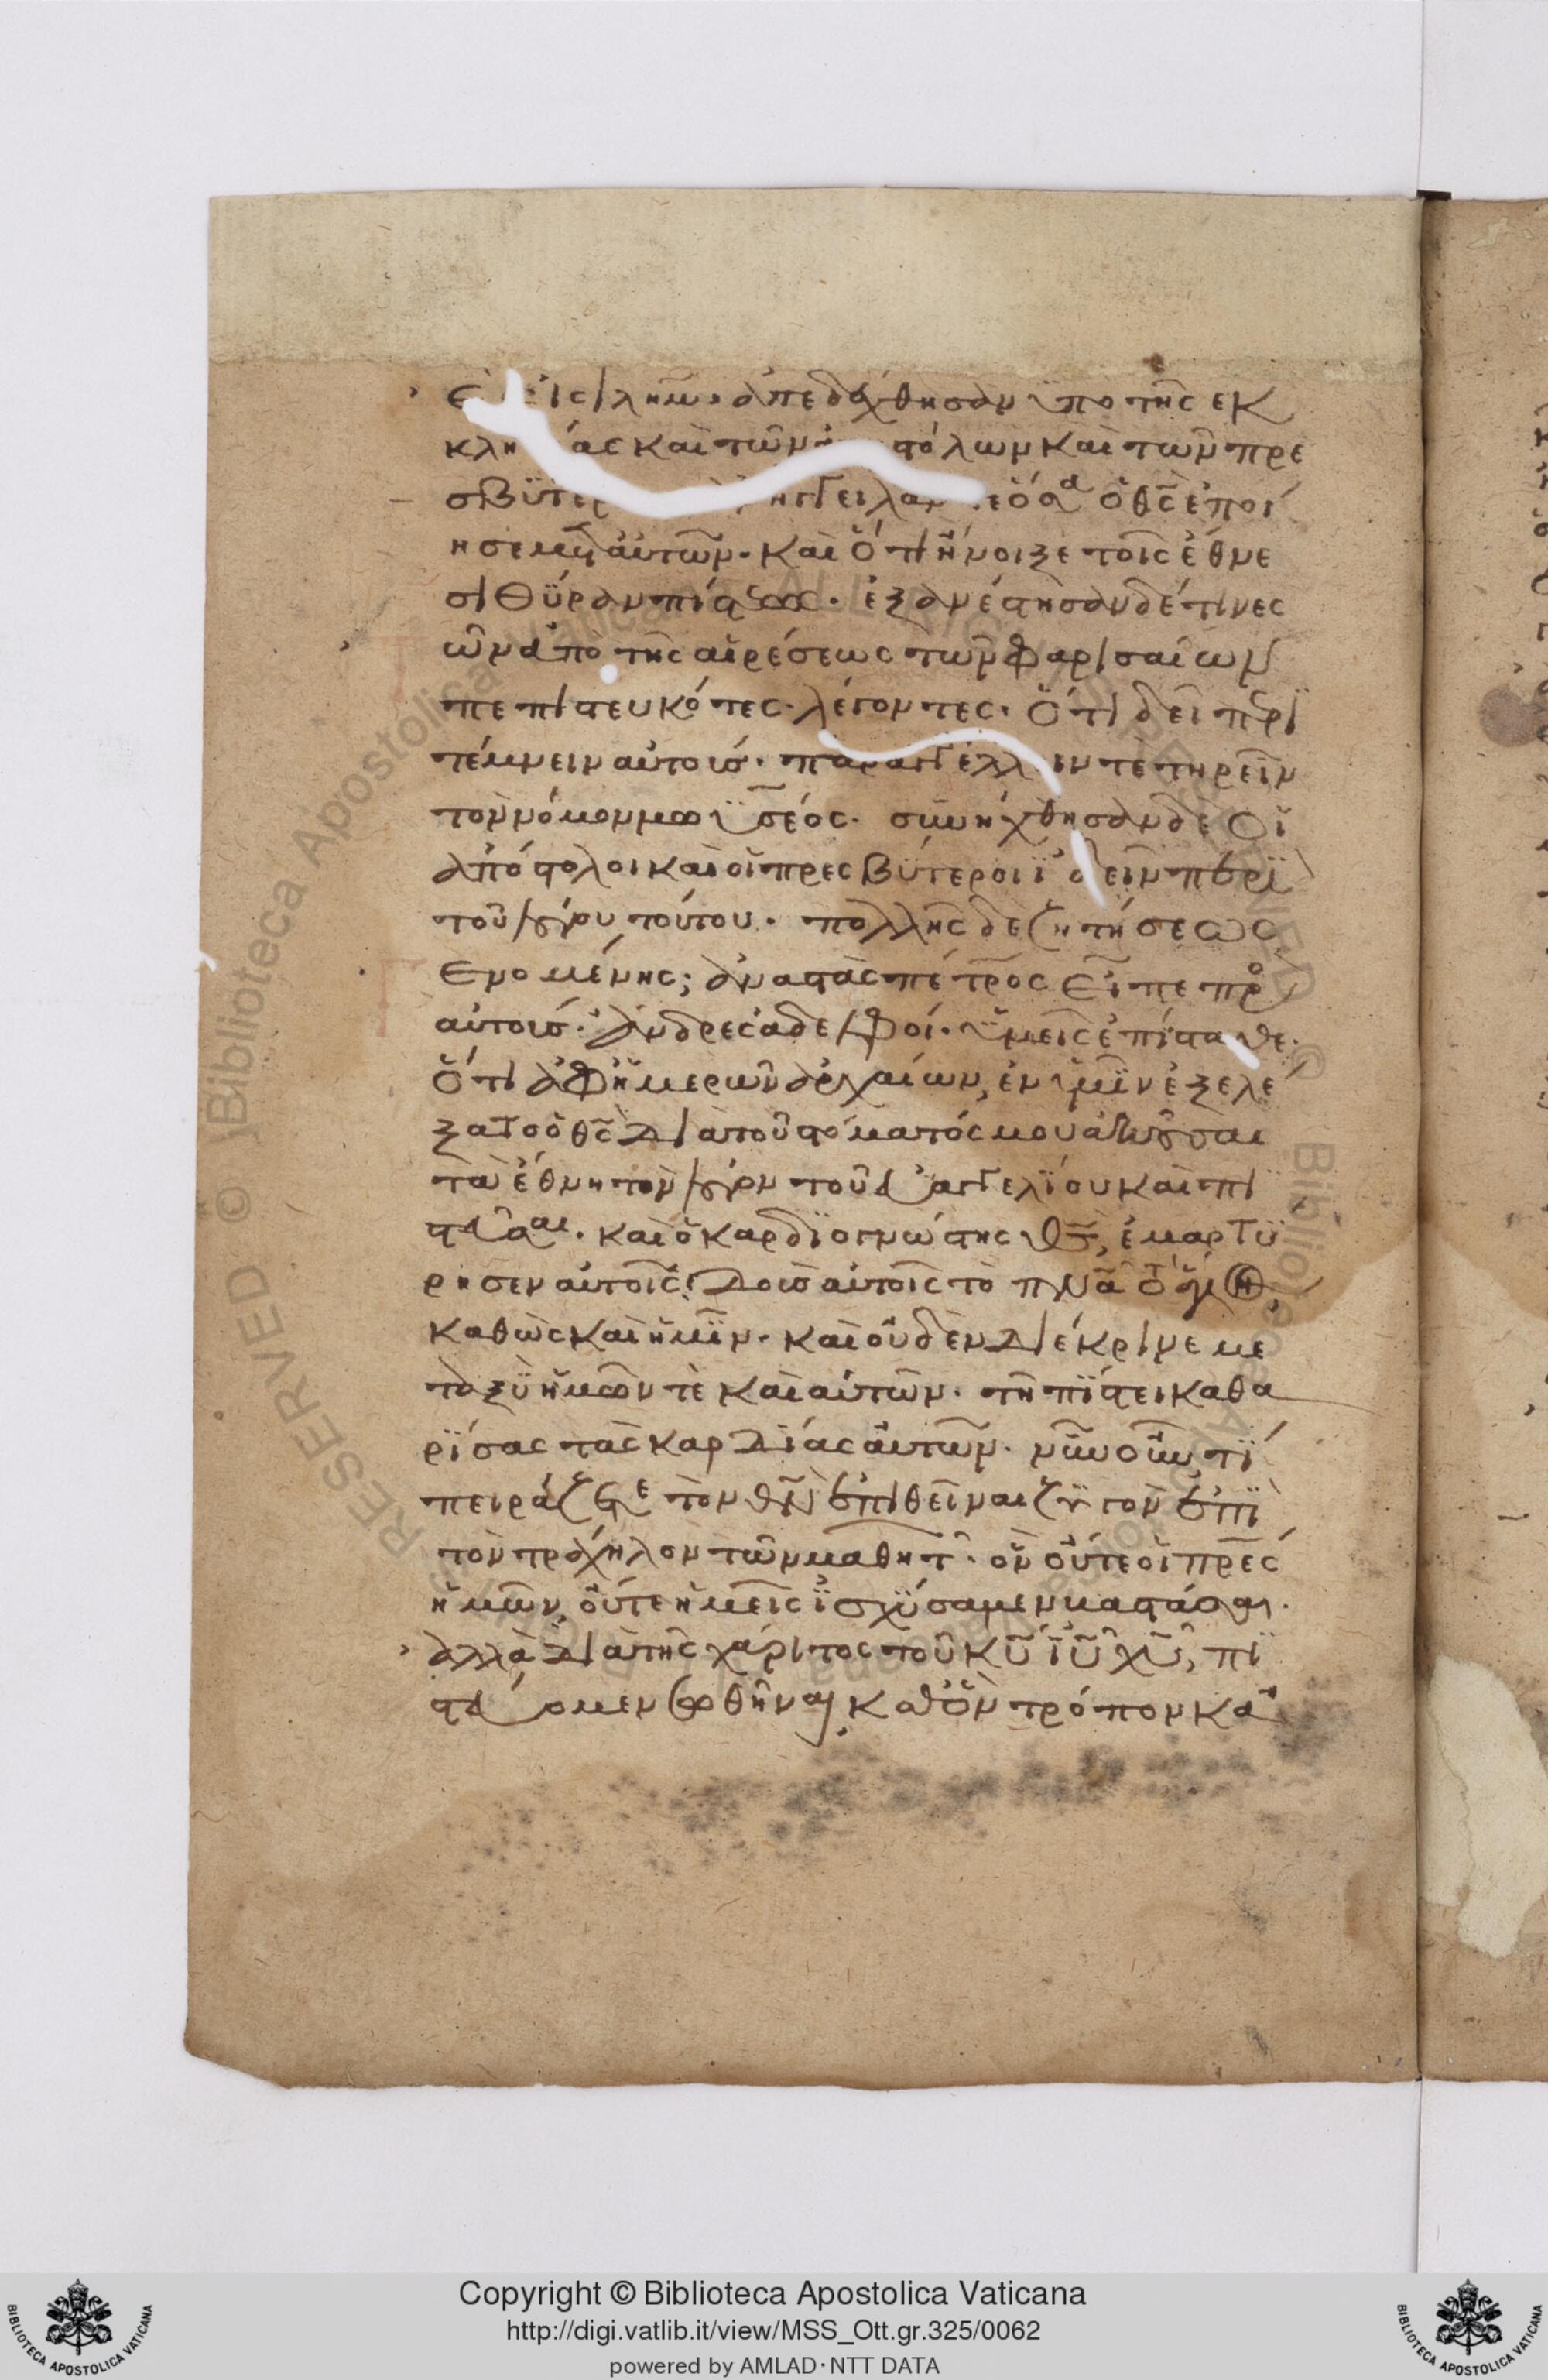 ιλημ, ἀπεδέχθησαν ὑπο τῆς εκ
κλη ας καὶ τῶν στόλων καὶ τῶν πρε
σβϋτερ γγειλαν ὅσα ὁ θς ἐποί
ησε μετ αὐτῶν. καὶ ὅτι ἤνοιξε τοῖς ἔθνε
σι θύραν πίστεως. ἐξανέστησαν δέ τινες
ὧν ἀπὸ τῆς αἱρέσεως τῶν φαρισαίων
πεπιστευκότες. λέγοντες. ὅτι δεῖ περϊ
τέμνειν αὐτοισ. παραγγέλλ ιν τε τηρεῖν
τὸν νόμον μωϋσέος. συνήχθησαν δὲ οἱ
ἀπόστολοι καὶ οἱ πρεσβύτεροι ἰδεῖν περϊ
τοῦ λόγου τούτου. πολλῆς δὲ ζητήσεως
γενομένης; ἀναστὰς πέτρος εἶπε πρὸ
αὐτοισ. ἄνδρες ἀδελφοί. ὑμεῖς ἐπίστασθε.
ὅτι ἀφ ἡμερῶν ἀρχαίων, ἐν ἡμῖν ἐξελέ
ξατο ὁ θς διὰ τοῦ στόματός μου ἀκοῦσαι
τὰ ἔθνη τὸν λόγον τοῦ εὐαγγελίου καὶ πι
στεῦσαι. καὶ ὁ καρδϊογνώστης θς, ἐμαρτϋ
ρησεν αὐτοῖς. δοὺσ αὐτοῖς τὸ πνα τὸ ἅγιον
καθὼς καὶ ἡμῖν. καὶ οὐδὲν διέκρινε με
ταξὺ ἡμῶν τὲ καὶ αὐτῶν. τῇ πίστει καθα
ρίσας τὰς καρδίας αὐτῶν. νῦν οὖν τί
πειράζετε τὸν θν ἐπιθεῖναι ζϋγὸν ἐπὶ
τὸν τράχηλον τῶν μαθητ. ὃν οὔτε οἱ πρες
ἡμῶν, οὔτε ἡμεῖς ἰσχύσαμεν βαστάσαι.
ἀλλὰ διὰ τῆς χάριτος τοῦ κυ ιυ χυ, πϊ
στεύομεν σωθῆναι, καθ ὃν τρόπον κα
Copyright © Biblioteca Apostolica Vaticana
http://digi.vatlib.it/view/MSS_Ott.gr.325/0062
powered by AMLAD·NTT DATA